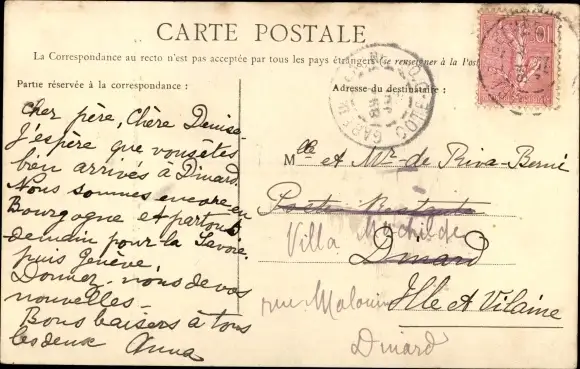 CARTE POSTALE
La Correspondance au recto n'est pas acceptée par tous les pays étrangers (se renseigner à la Post
Partie réservée à la correspondance :
Adresse du destinataire :
Cher père, Chère Denise
J'espère que vous êtes
bien arrivés à Dinard.
Nous sommes encore en
Bourgogne et partons
demain pour la Savoie,
puis Genève,
Donnez-nous de vos
nouvelles -
Bons baisers à tous
les deux Anna
Mlle et Mr de Riva-Berni
Poste Restante
Villa Mathilde
Dinard
rue Malouin
Ille et Vilaine
Dinard
10
GARE
COTE